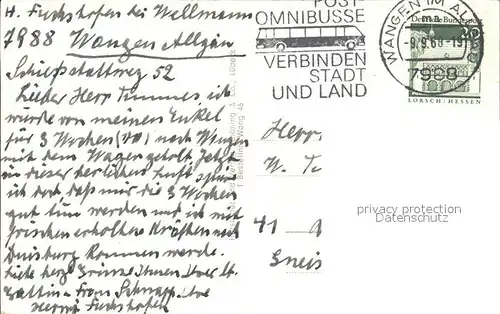 H. Fuchshofen bei Wellmann
7988 Wangen Allgäu
Schießstattweg 52
Lieber Herr Timmes ich
wurde von meinem Enkel
für 3 Wochen nach Wangen
mit dem Wagen geholt. Jetzt
in dieser herlichen Luft spüre
ich doch daß mir die 3 Wochen
gut tun werden und ich mit
frischen erholten Kräften nach
Duisburg kommen werde.
Liebe herz. Grüsse Ihnen Ihrer lb.
Gattin u. Frau Schnapp Ihre
Hermi Fuchshofen
POST-
OMNIBUSSE
VERBINDEN
STADT
UND LAND
WANGEN IM ALLGÄU
-9.9.68-19
7988
Deutsche Bundespost
20
LORSCH/HESSEN
Herrn
W. Te
41 - A
Gneis
privacy protection
Datenschutz